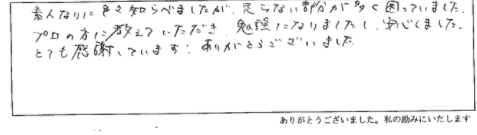 素人なりに色々知らべましたが、足らない部分が多く困っていました。
プロの方に教えていただき、勉強になりましたし、安心しました。
とても感謝しています。ありがとうございました
ありがとうございました。私の励みにいたします